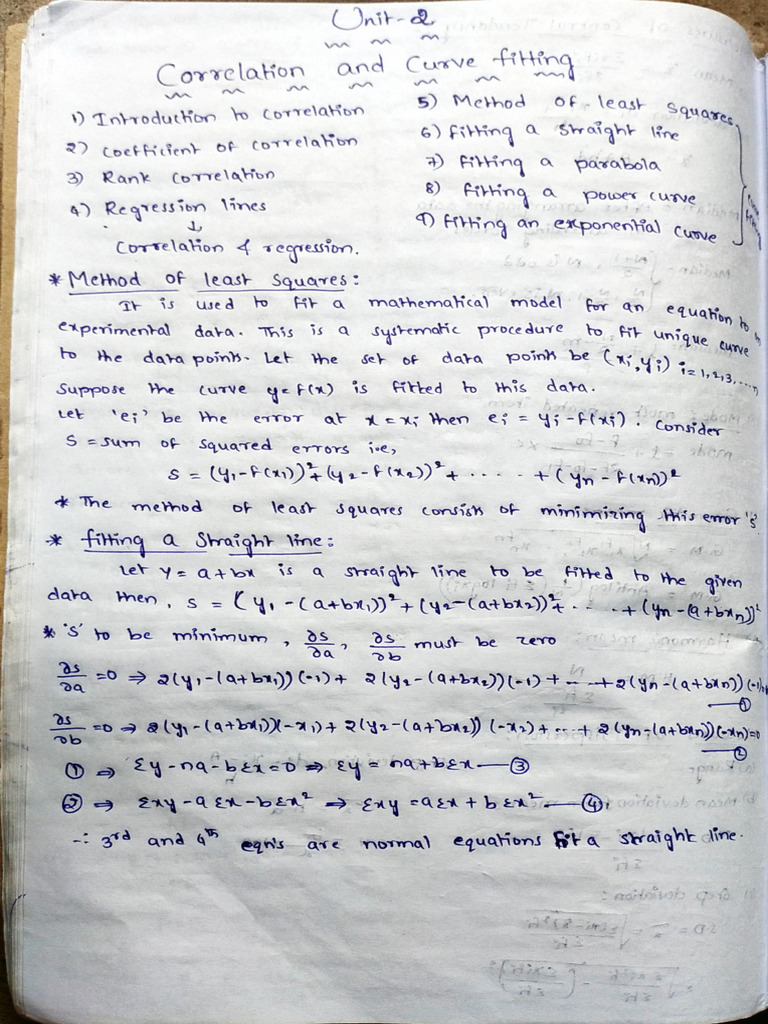 Unit-2
Correlation and Curve fitting
1) Introduction to correlation
2) coefficient of correlation
3) Rank correlation
4) Regression lines
↓
Correlation & regression.
5) Method of least squares
6) fitting a straight line
7) fitting a parabola
8) fitting a power curve
9) fitting an exponential curve
* Method of least squares:
It is used to fit a mathematical model for an equation to
experimental data. This is a systematic procedure to fit unique curve
to the data points. Let the set of data point be (xi, yi) i=1,2,3,....n
Suppose the curve y=f(x) is fitted to this data.
Let 'ei' be the error at x=xi then ei = yi-f(xi). Consider
S = sum of squared errors i.e,
S = (y1-f(x1))²+(y2-f(x2))²+ ..... +(yn-f(xn))²
* The method of least squares consists of minimizing this error 's'.
* fitting a Straight line:
Let y=a+bx is a straight line to be fitted to the given
data then, S = (y1-(a+bx1))²+(y2-(a+bx2))²+ ..... +(yn-(a+bxn))²
* 's' to be minimum, ∂s/∂a, ∂s/∂b must be zero
∂s/∂a =0 ⇒ 2(y1-(a+bx1))(-1)+ 2(y2-(a+bx2))(-1)+ ... +2(yn-(a+bxn))(-1) ①
∂s/∂b =0 ⇒ 2(y1-(a+bx1))(-x1)+2(y2-(a+bx2))(-x2)+...+ 2(yn-(a+bxn))(-xn)=0 ②
① ⇒ Σy-na-bΣx=0 ⇒ Σy = na+bΣx — ③
② ⇒ Σxy-aΣx-bΣx² ⇒ Σxy =aΣx+bΣx² — ④
∴ 3rd and 4th eqn's are normal equations fit a straight line.